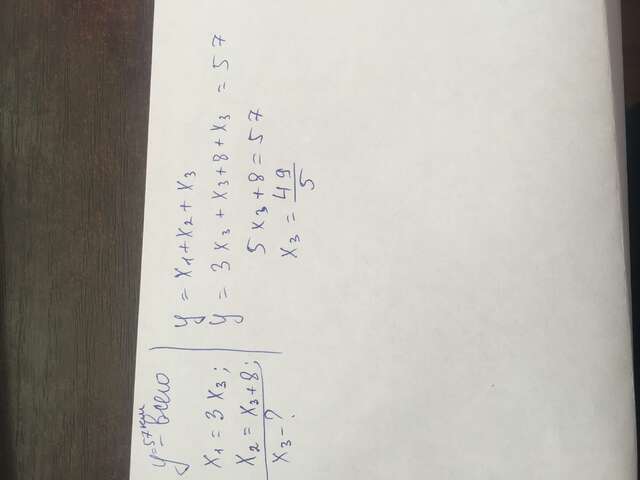 y=57 км
y - всего
x1 = 3x3;
x2 = x3+8;
x3 - ?
y = x1+x2+x3
y = 3x3 + x3+8+x3 = 57
5x3+8=57
x3 = 49/5